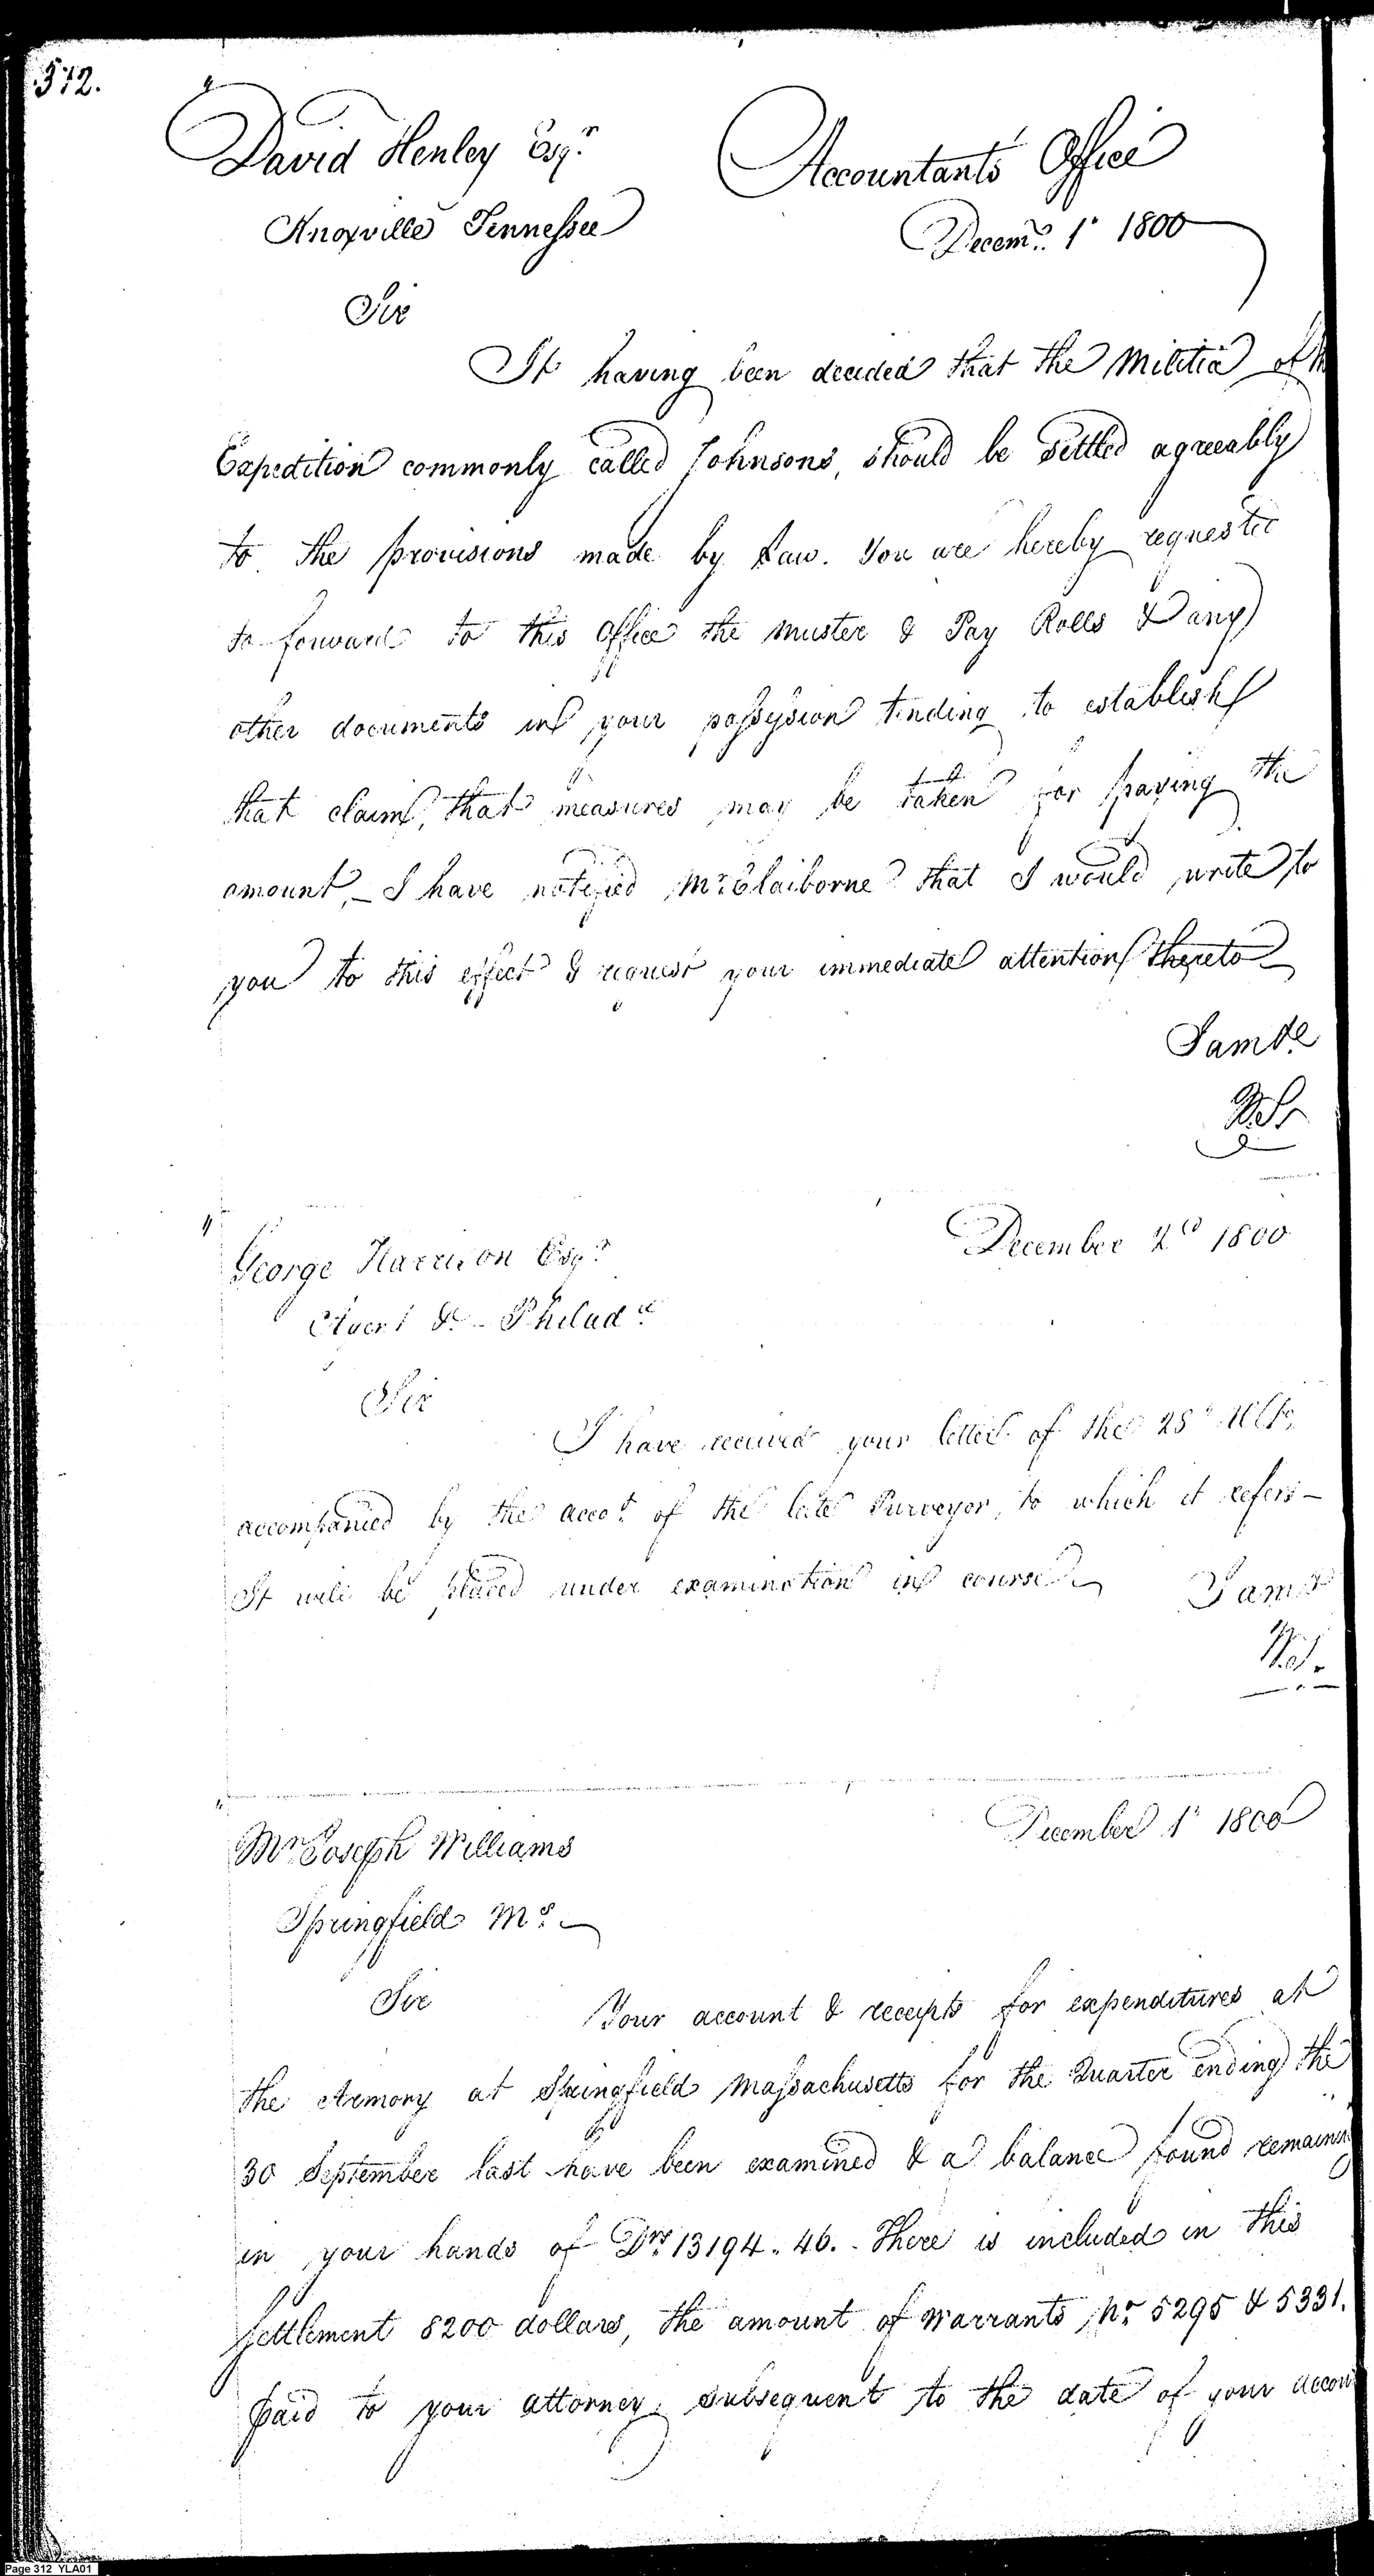 312.
David Henley Esqr.
Accountants Office
Knoxville Tennessee
Decemr. 1t 1800
Sir
It having been decided that the Militia of
Expedition commonly called Johnsons, should be settled agreeably
to the provisions made by Law. You are hereby requested
to forward to this Office the Muster & Pay Rolls & any
other documents in your possession tending to establish
that claim, that measures may be taken for paying the
amount,_ I have notified Mr. Claiborne that I would write to
you to this effect & request your immediate attention thereto
I am &c
W.S.
George Harrison Esqr.
December 2d 1800
Agent &c - Philada.
Sir
I have received your letter of the 28th Ulto,
accompanied by the accot. of the late Purveyor, to which it refers -
It will be placed under examination in course.
I am &c
W.S.
Mr. Joseph Williams
December 1t 1800
Springfield Ms.
Sir
Your account & receipts for expenditures at
the Armory at Springfield Massachusetts for the Quarter ending the
30 September last have been examined & a balance found remaining
in your hands of Drs. 13194. 46. - There is included in this
settlement 8200 dollars, the amount of Warrants No. 5295 & 5331.
paid to your attorney, subsequent to the date of your accoun
Page 312 YLA01